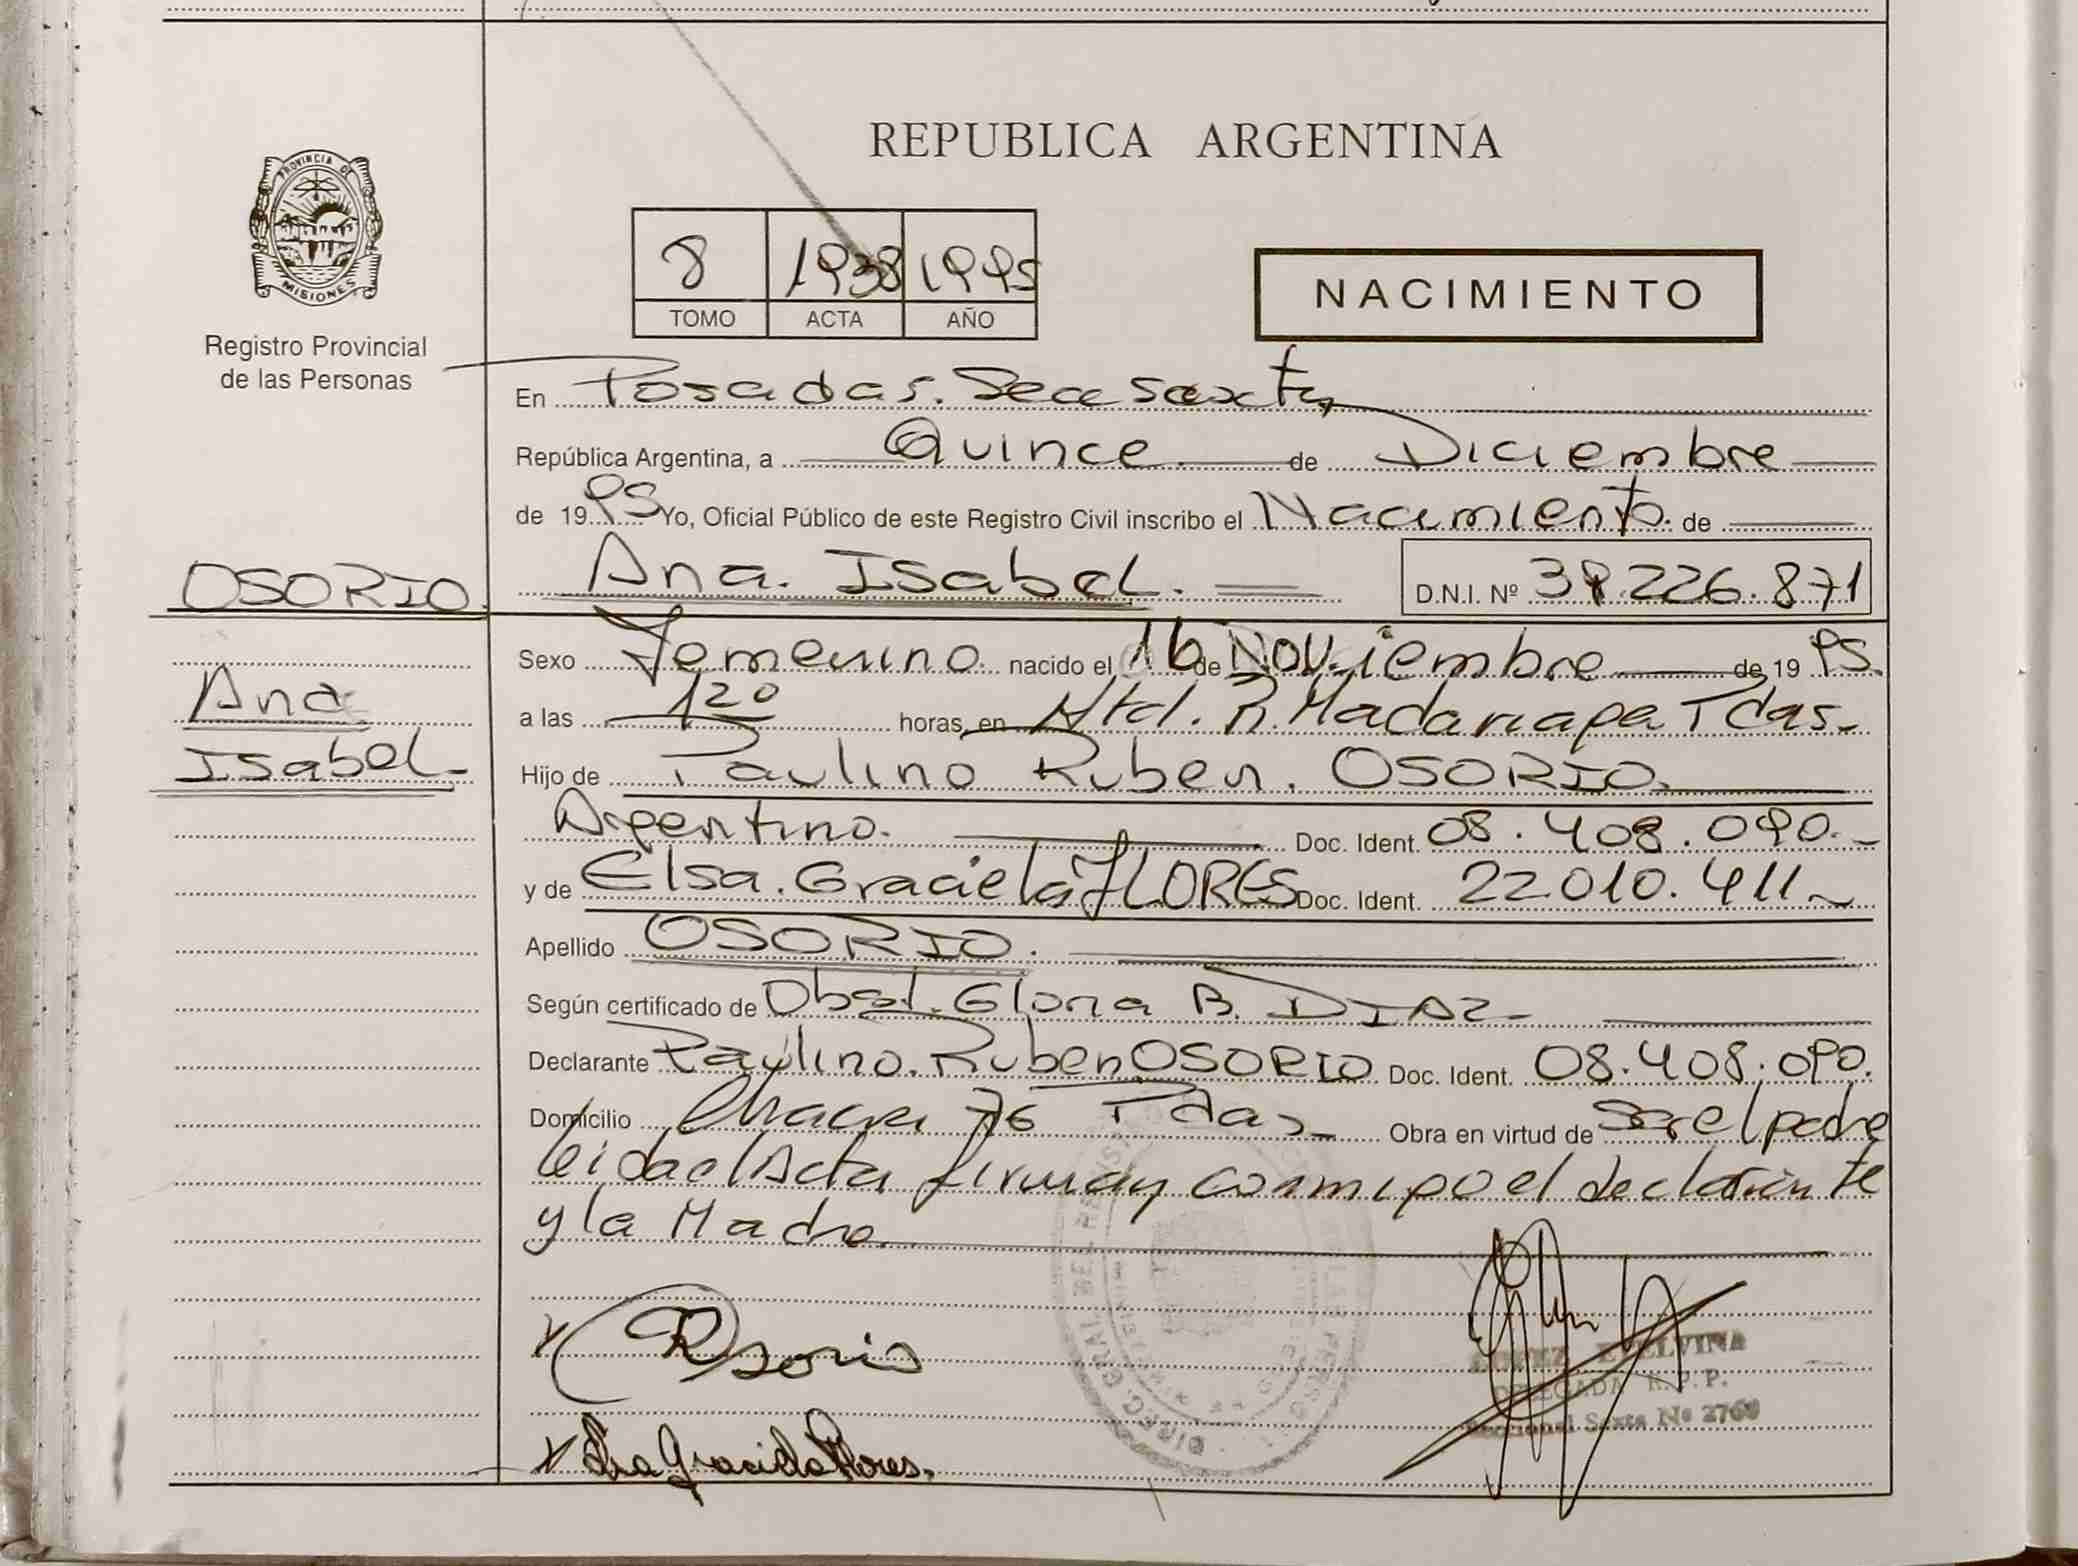 REPUBLICA ARGENTINA
PROVINCIA DE
MISIONES
Registro Provincial
de las Personas
8 1938 1995
TOMO ACTA AÑO
NACIMIENTO
En Posadas. Secc Sexta
República Argentina, a Quince de Diciembre
de 1995 Yo, Oficial Público de este Registro Civil inscribo el Nacimiento de
OSORIO
Ana Isabel
Ana. Isabel.
D.N.I. Nº 39.226.871
Sexo Femenino nacido el 16 de Noviembre de 1995.
a las 120 horas, en Htal. R. Madariaga Pdas.
Hijo de Paulino Ruben. OSORIO.
Argentino. Doc. Ident. 08.408.090.
y de Elsa. Graciela FLORES Doc. Ident. 22010.411
Apellido OSORIO.
Según certificado de Obst. Gloria B. DIAZ
Declarante Paulino. Ruben OSORIO Doc. Ident. 08.408.090.
Domicilio Chacra 76 Pdas Obra en virtud de ser el padre
leida el Acta firman conmigo el declarante
y la Madre
x Osorio
x Elsa Graciela Flores.
EVELVINA
DELEGADA R.P.P.
Seccional Sexta Nº 2760